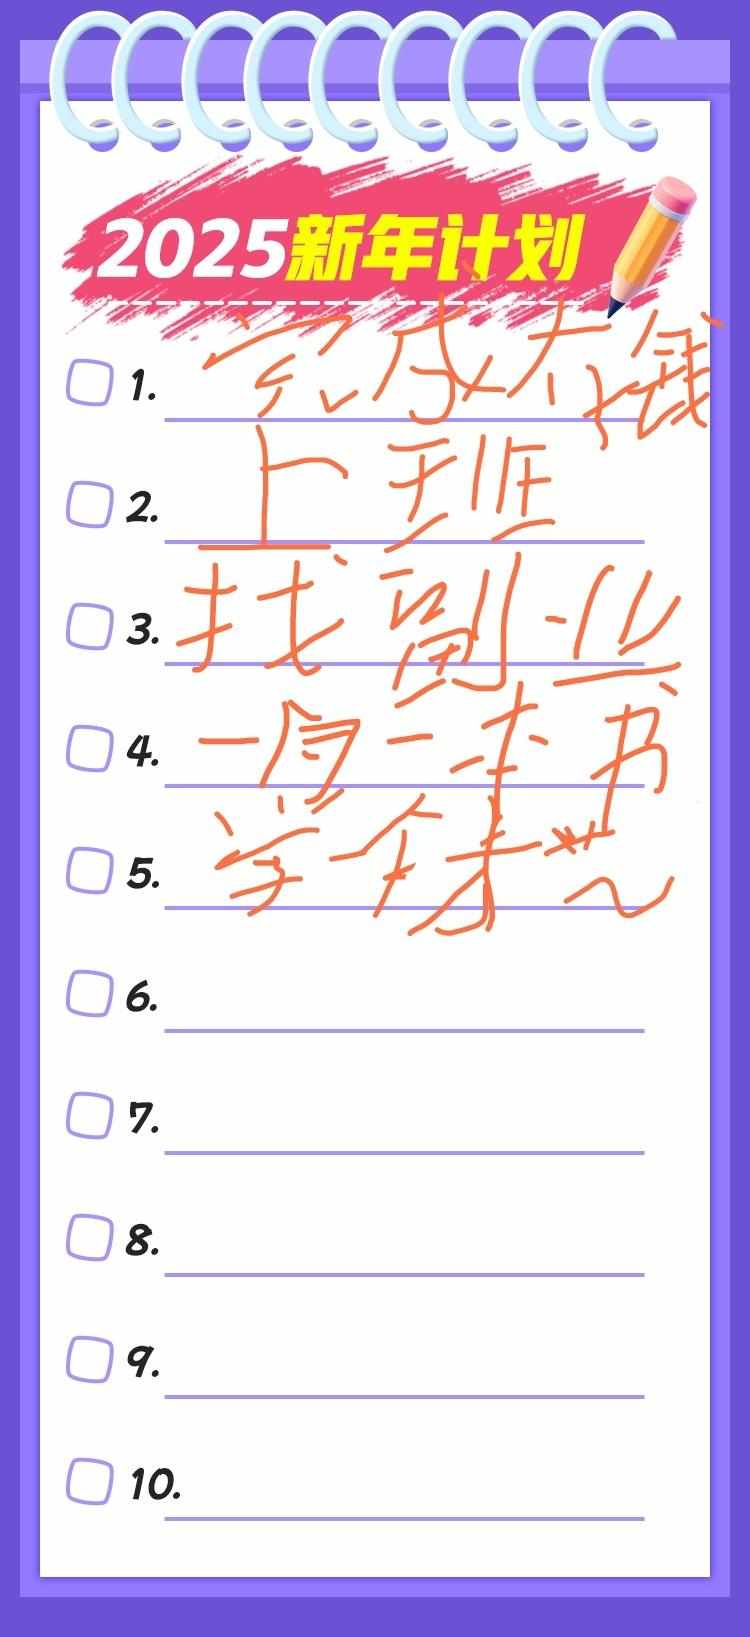 2025新年计划
1. 完成存钱
2. 上班
3. 找副业
4. 一周一本书
5. 学个才艺
6.
7.
8.
9.
10.